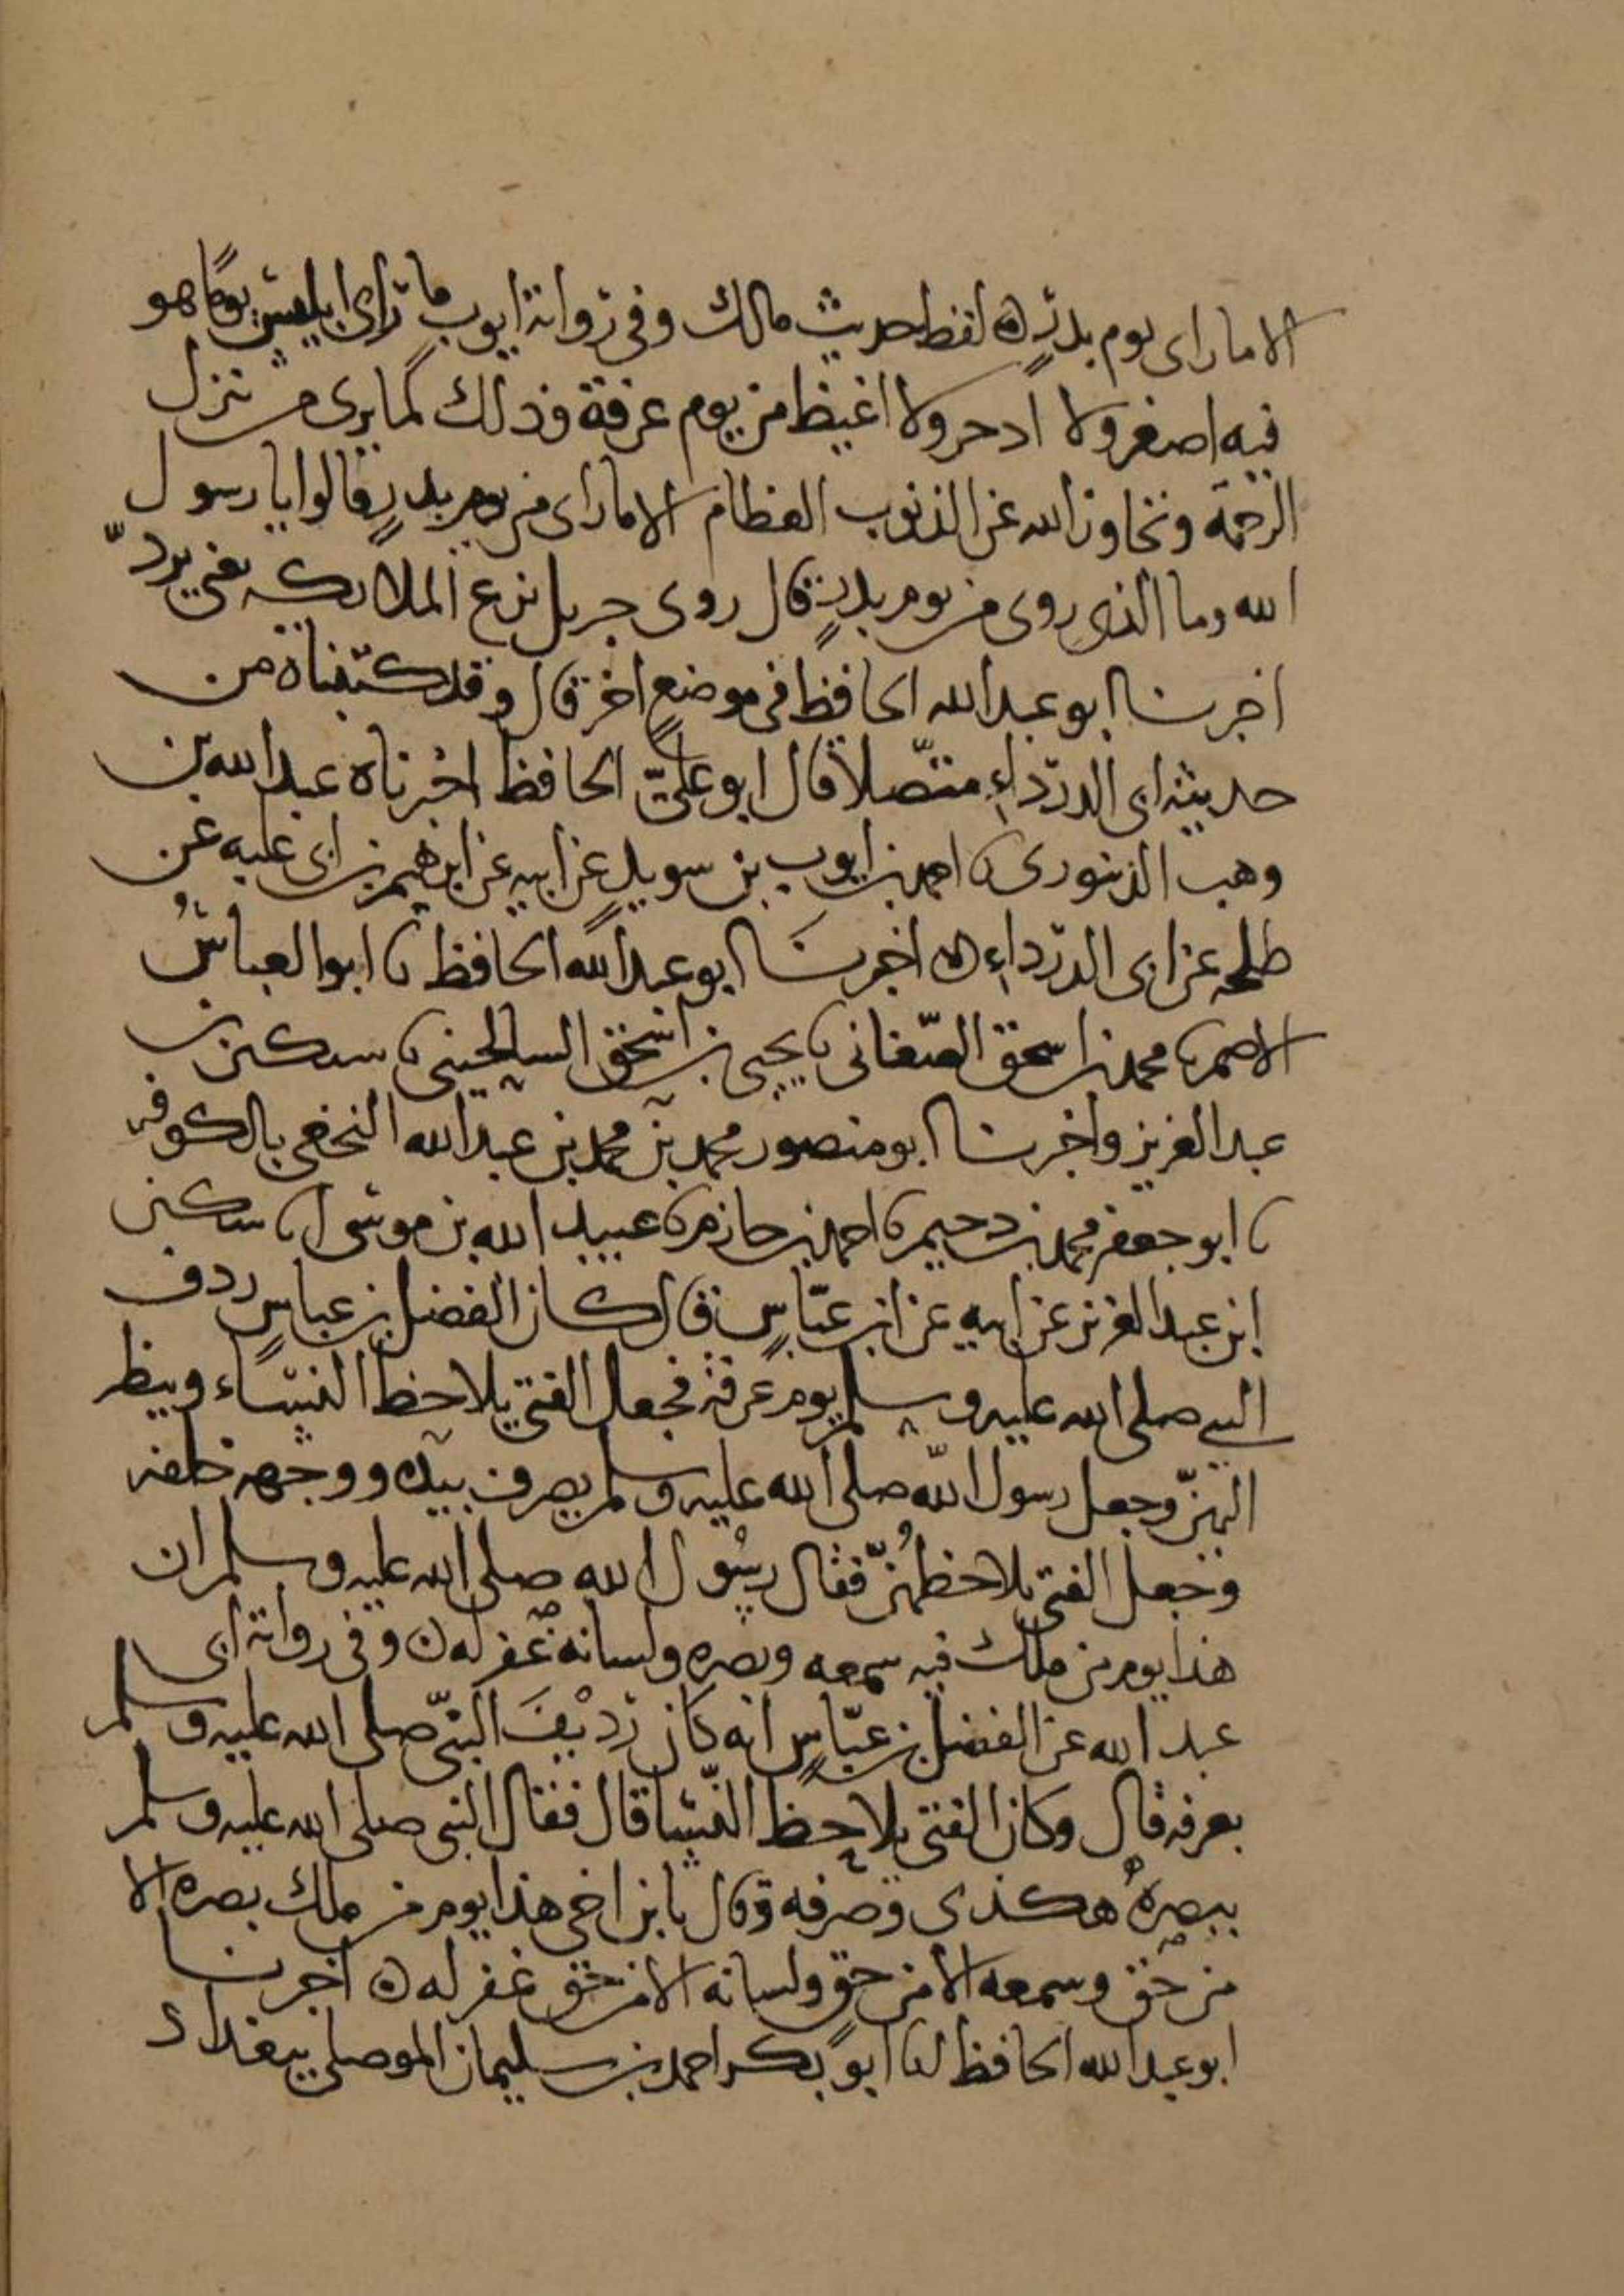 الا ما راى يوم بدرٍ ه لفظ حديث مالك وفي رواية ايوب ما رأى ابليس يومًا هو
فيه اصغر ولا ادحر ولا اغيظ من يوم عرفة وذلك لما يرى من تنزل
الرحمة وتجاوز الله عن الذنوب العظام الا ما راى من يوم بدرٍ قالوا يا رسول
الله وما الذي روى من يوم بدرٍ قال روى جبريل يزع الملايكه يعني يردّ
اخبرنا ابو عبدالله الحافظ في موضعٍ اخر قال وقد كتبناه من
حديث ابي الدرداءِ متّصلاً قال ابو عليّ الحافظ اخبرناه عبدالله بن
وهب الدينوري نا احمد بن ايوب بن سويدٍ عن ابيه عن ابرهيم بن ابي عليه عن
طلحه عن ابي الدرداءِ ه اخبرنَا ابو عبدالله الحافظ نا ابو العباسُ
الاصم نا محمد بن اسحق الصّغاني نا يحيى بن اسحق السالحيني نا سكين بن
عبد العزيز واخبرنا ابو منصور محمد بن محمد بن عبدالله النخعي بالكوفه
نا ابو جعفر محمد بن دحيم نا احمد بن حازم نا عبيد الله بن موسى نا سكين
ابن عبد العزيز عن ابيه عن ابن عبّاسٍ قال كان الفضل بن عباسٍ ردف
النبي صلى الله عليه وسلم يوم عرفة فجعل الفتى يلاحظ النساء وينظر
اليهنّ وجعل رسول الله صلى الله عليه وسلم يصرف بيده ووجهه خلفه
وجعل الفتى يلاحظهُنّ فقال رسُول الله صلى الله عليه وسلم ان
هذا يوم من ملك فيه سمعه وبصره ولسانه غفر له ه وفي رواية ابي
عبد الله عن الفضل بن عبّاسٍ انه كان رديْفَ النبيّ صلى الله عليه وسلم
بعرفه قال وكان الفتى يلاحظ النّسا قال فقال النبي صلى الله عليه وسلم
ببصرهُ هكذى وصرفه وقال يا بن اخي هذا يوم من ملك بصره الا
من حق وسمعه الا من حق ولسانه الا من حق غفر له ه اخبرنا
ابو عبدالله الحافظ انا ابو بكر احمد بن سليمان الموصلي ببغداد